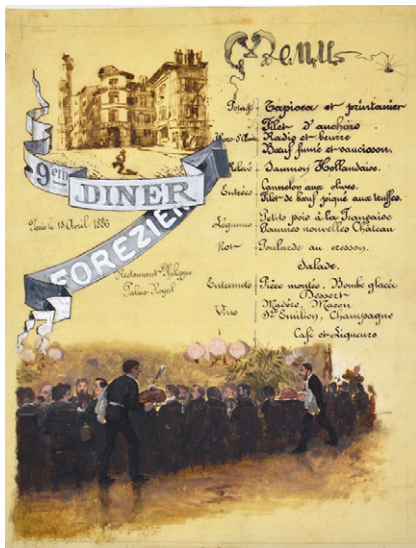 Menu
9em DINER
FOREZIEN
Paris le 13 Avril 1886
Restaurant-Philippe
Palais-Royal
Potage - Tapioca et printanier
Filet d'anchois
Radis et beurre
Bœuf fumé et saucisson.
Relevé - Saumon Hollandaise.
Entrées - Cannelon aux olives.
Filet de bœuf piqué aux truffes.
Légumes - Petits pois à la Française
Pommes nouvelles Château
Rot - Poularde au cresson.
Salade.
Entremets - Pièce montée, Bombe glacée
Dessert
Vins Madère, Macon
St Emilion, Champagne
Café et Liqueurs